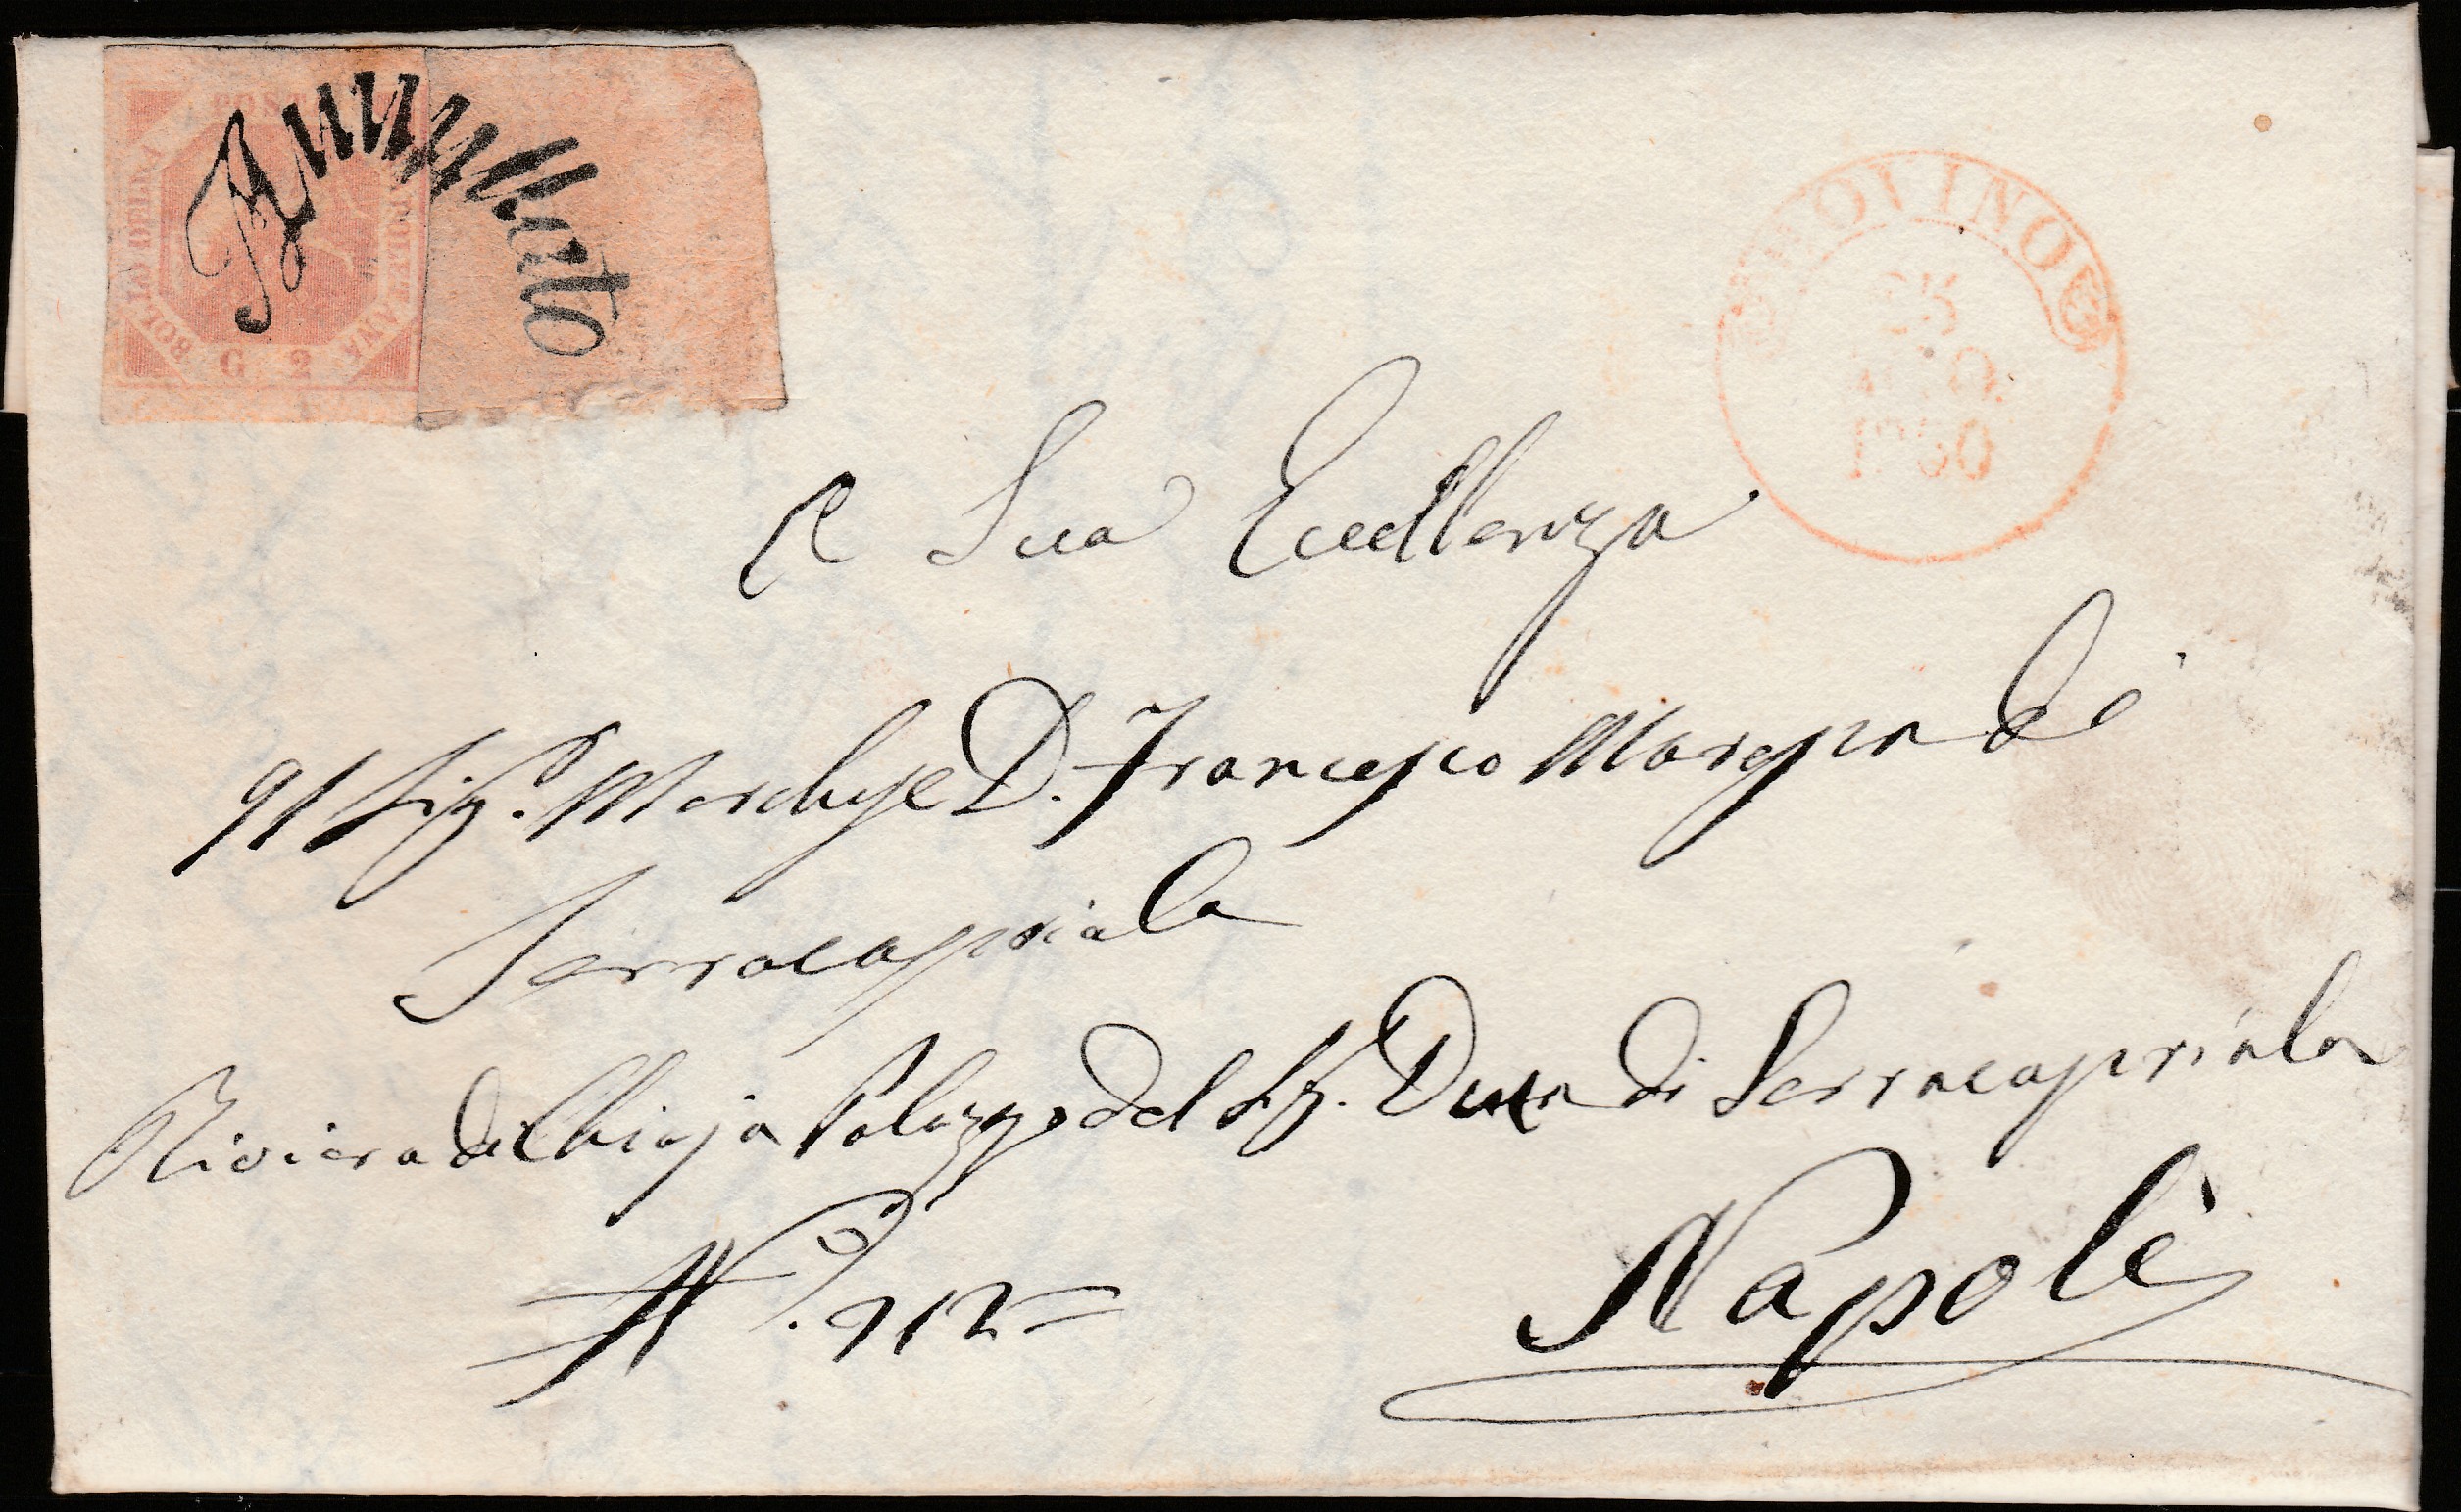 BOLLO DELLA POSTA NAPOLETANA
G 2
Annullato
BOVINO
25
AGO.
A Sua Eccellenza
Al Sig.r Marchese D. Francesco Maresca di
Serracapriola
Riviera di Chiaja Palazzo del Sig. Duca di Serracapriola
N.o 212
Napoli